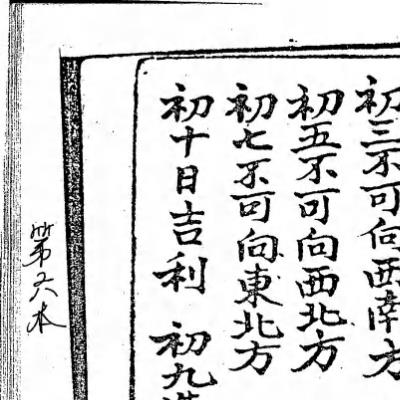 初三不可向西南方
初五不可向西北方
初七不可向東北方
初十日吉利 初九
第六本